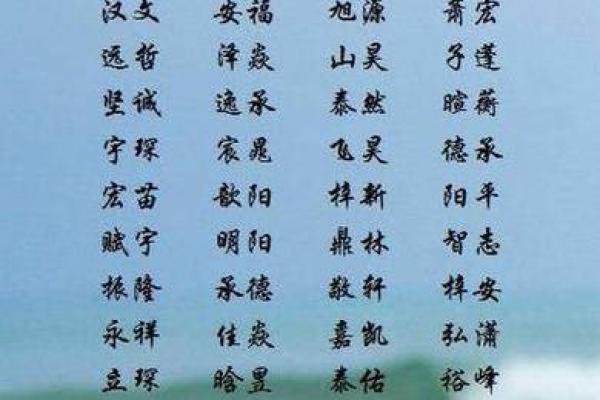 汉文 安福 旭源 萧宏
远哲 泽焱 山昊 子蓬
坚诚 逸承 泰然 暄蘅
宇琛 宸晁 飞昊 德承
宏苗 歆阳 梓新 阳平
赋宇 明阳 鼎林 智志
振隆 承德 敬轩 梓安
永祥 佳焱 嘉凯 弘潇
立琛 晗昱 泰佑 裕峰